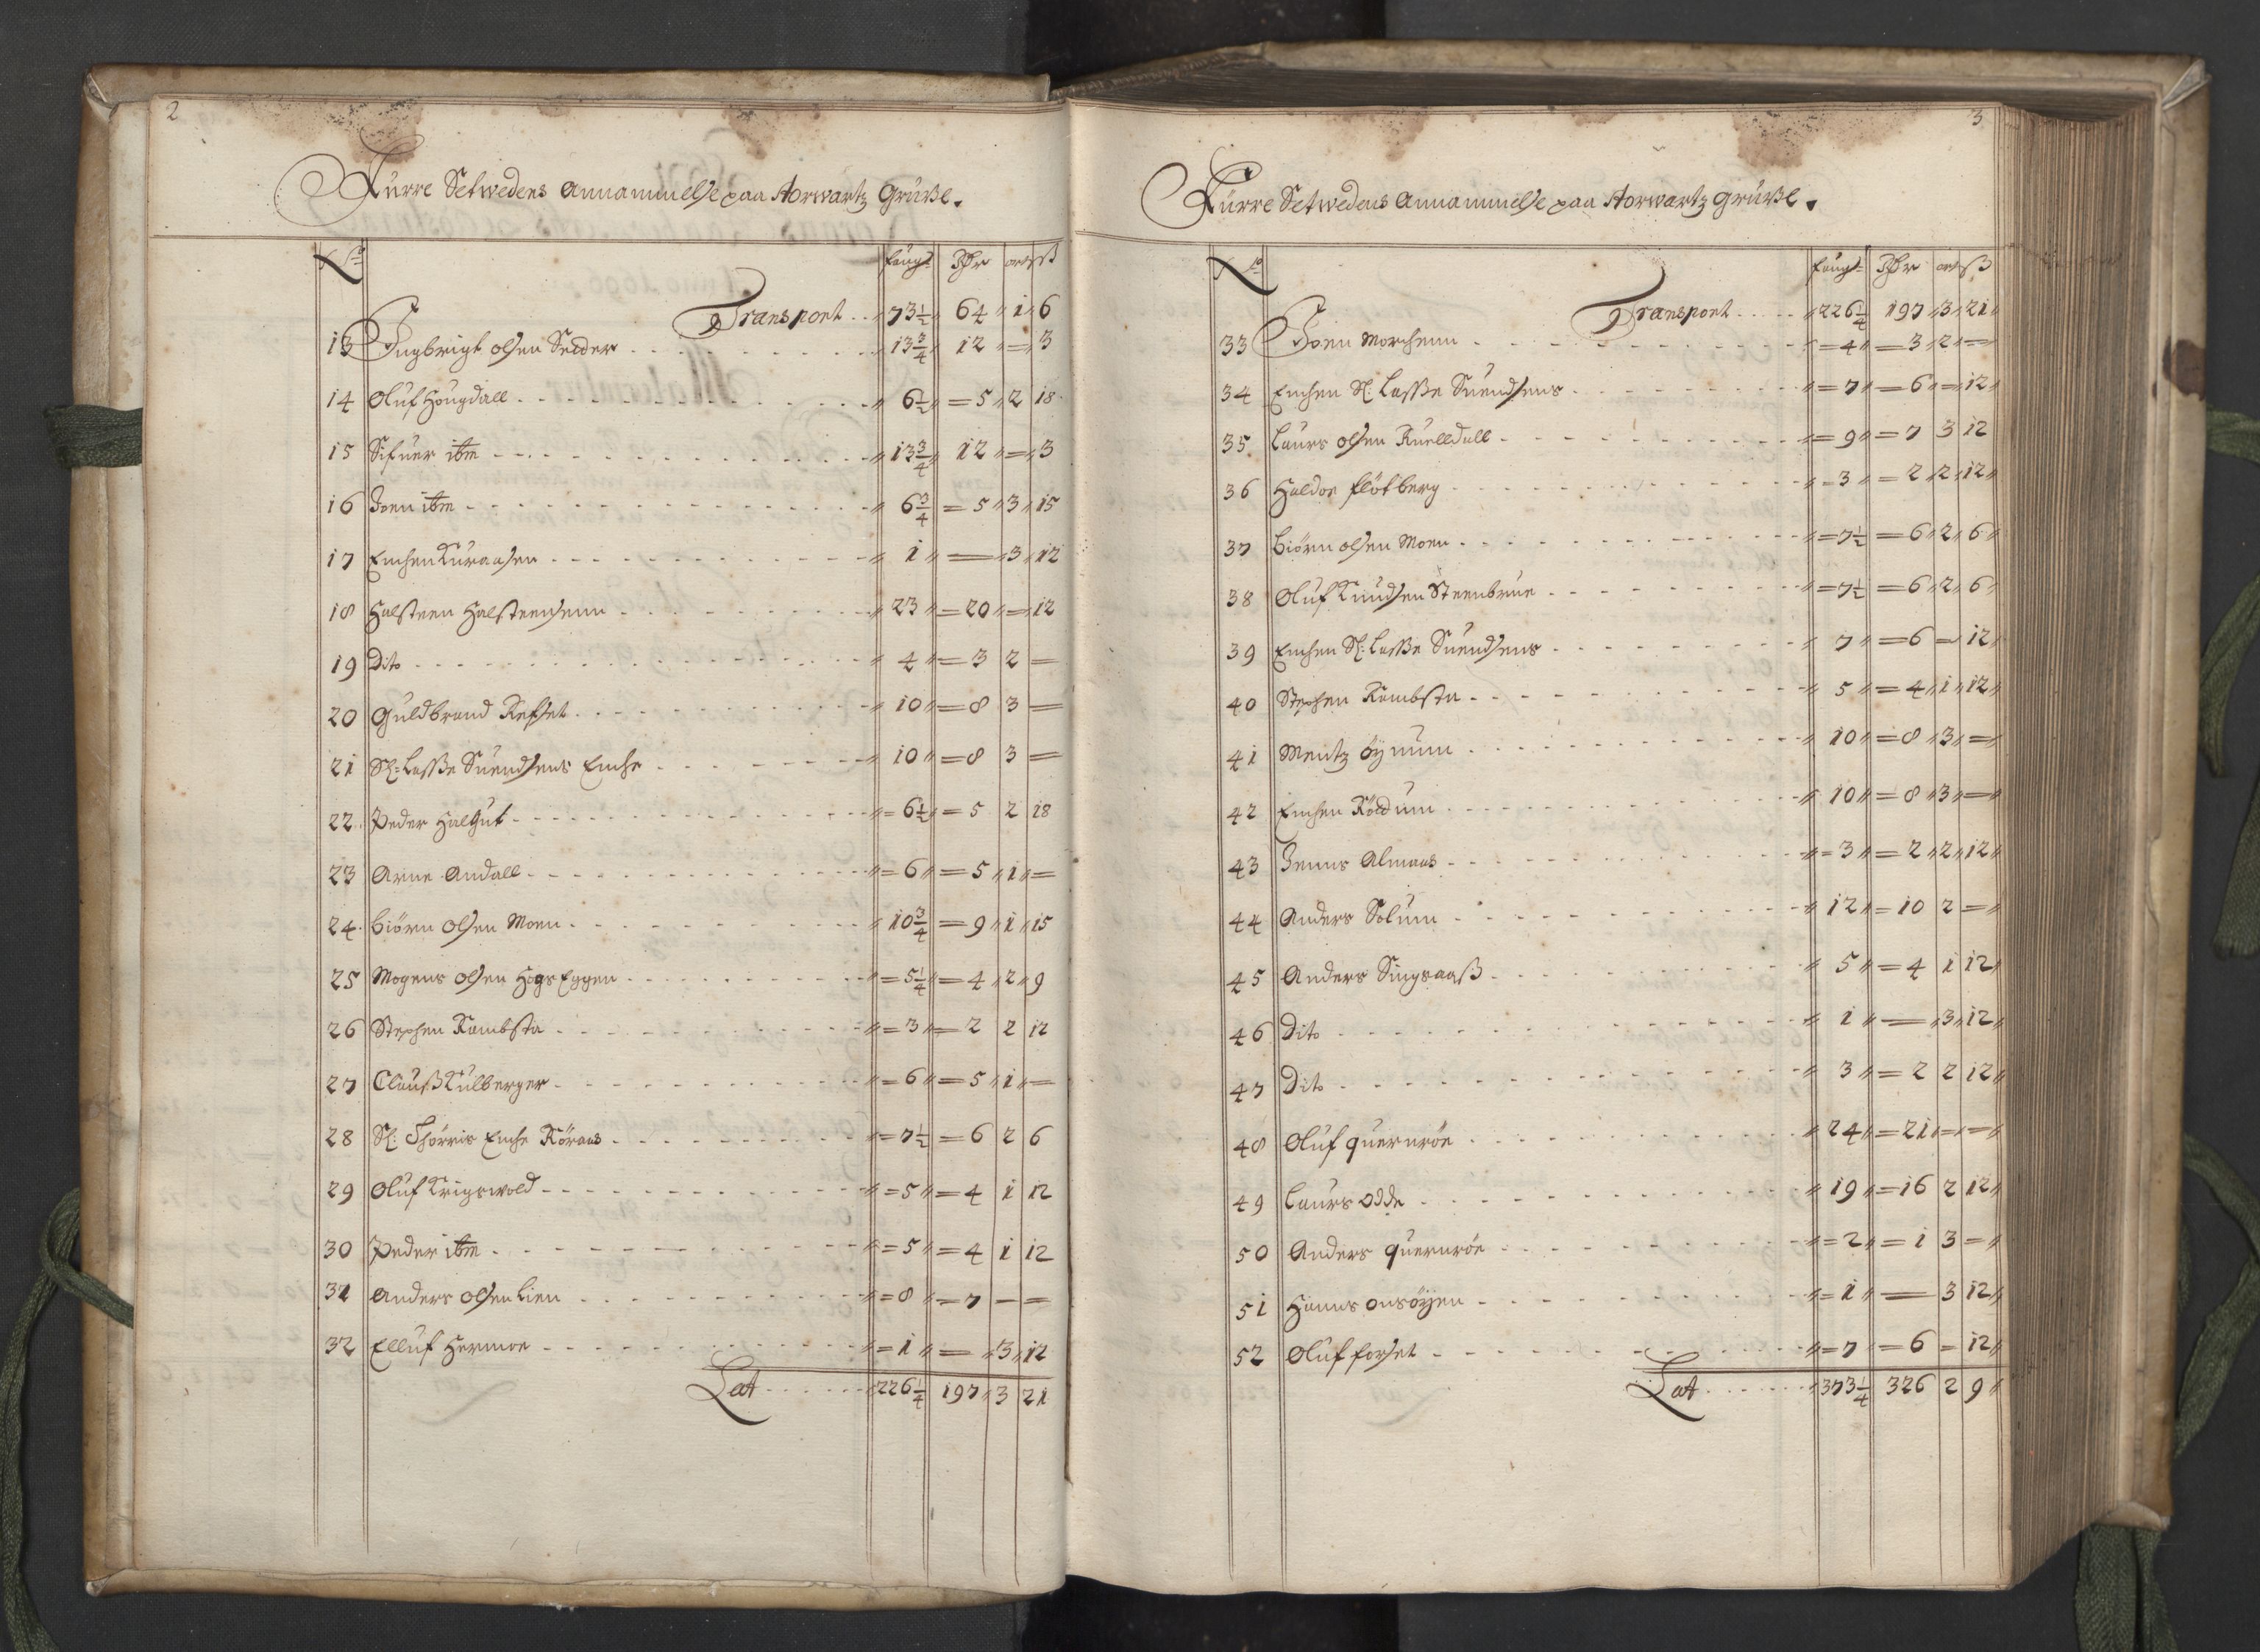 2
Furre Setwedens Annammelse paa Storwartz Gruße.
No faugt Rdr ort ß
Transport 73½ 64 1 6
13 Ingbrigt olsen Sedder 13¾ 12 = 3
14 Oluf Hougdall 6½ = 5 2 18
15 Sifuer ibm 13¾ 12 = 3
16 Joen ibm 6¾ = 5 3 15
17 Enchen Kuraasen 1 = 3 12
18 Halsteen Halsteensenn 23 = 20 = 12
19 Dito 4 = 3 2 =
20 Guldbrand Refset 10 = 8 3 =
21 Sl: Lasse Suendsens Enche 10 = 8 3 =
22 Peder Halgut = 6½ = 5 2 18
23 Arne Andall = 6 = 5 1 =
24 Biörn Olsen Moen 10¾ = 9 1 15
25 Mogens Olsen Hogs Eggen = 5¼ = 4 2 9
26 Stephen Kambsta = 3 = 2 2 12
27 Clauß Kulberger = 6 = 5 1 =
28 Sl: Thörris Enche Röraas = 7½ = 6 2 6
29 Oluf Krigswold = 5 = 4 1 12
30 Peder ibm = 5 = 4 1 12
31 Anders Olsen Lien = 8 = 7 = =
32 Elluf Hermoe = 1 = 3 12
Lat 226¼ 197 3 21
3
Furre Setwedens Annammelse paa Storwartz gruße.
No faugt Rdr ort ß
Transport 226¼ 197 3 21
33 Joen Morchenn = 4 = 3 2 =
34 Enchen Sl. Lasse Suendsens = 7 = 6 = 12
35 Laurs olsen Kuelldall = 9 = 7 3 12
36 Haldor flötberg = 3 = 2 2 12
37 Biörn olsen Moen = 7½ = 6 2 6
38 Oluf Knudsen Steenbrue = 7½ = 6 2 6
39 Enchen Sl: Lasse Suendsens 7 = 6 = 12
40 Stephen Kambsta 5 = 4 1 12
41 Mentz öynum 10 = 8 3 =
42 Enchen Röldum 10 = 8 3 =
43 Jenns Almaas = 3 = 2 2 12
44 Anders Solum 12 = 10 2 =
45 Anders Singsaaß 5 = 4 1 12
46 Dito 1 = 3 12
47 Dito 3 = 2 2 12
48 Oluf quernröe 24 = 21 = =
49 Laurs Odde 19 = 16 2 12
50 Anders quernröe = 2 = 1 3 =
51 Hanns onsöyen = 1 = 3 12
52 Oluf forset = 7 = 6 = 12
Lat 373¼ 326 2 9